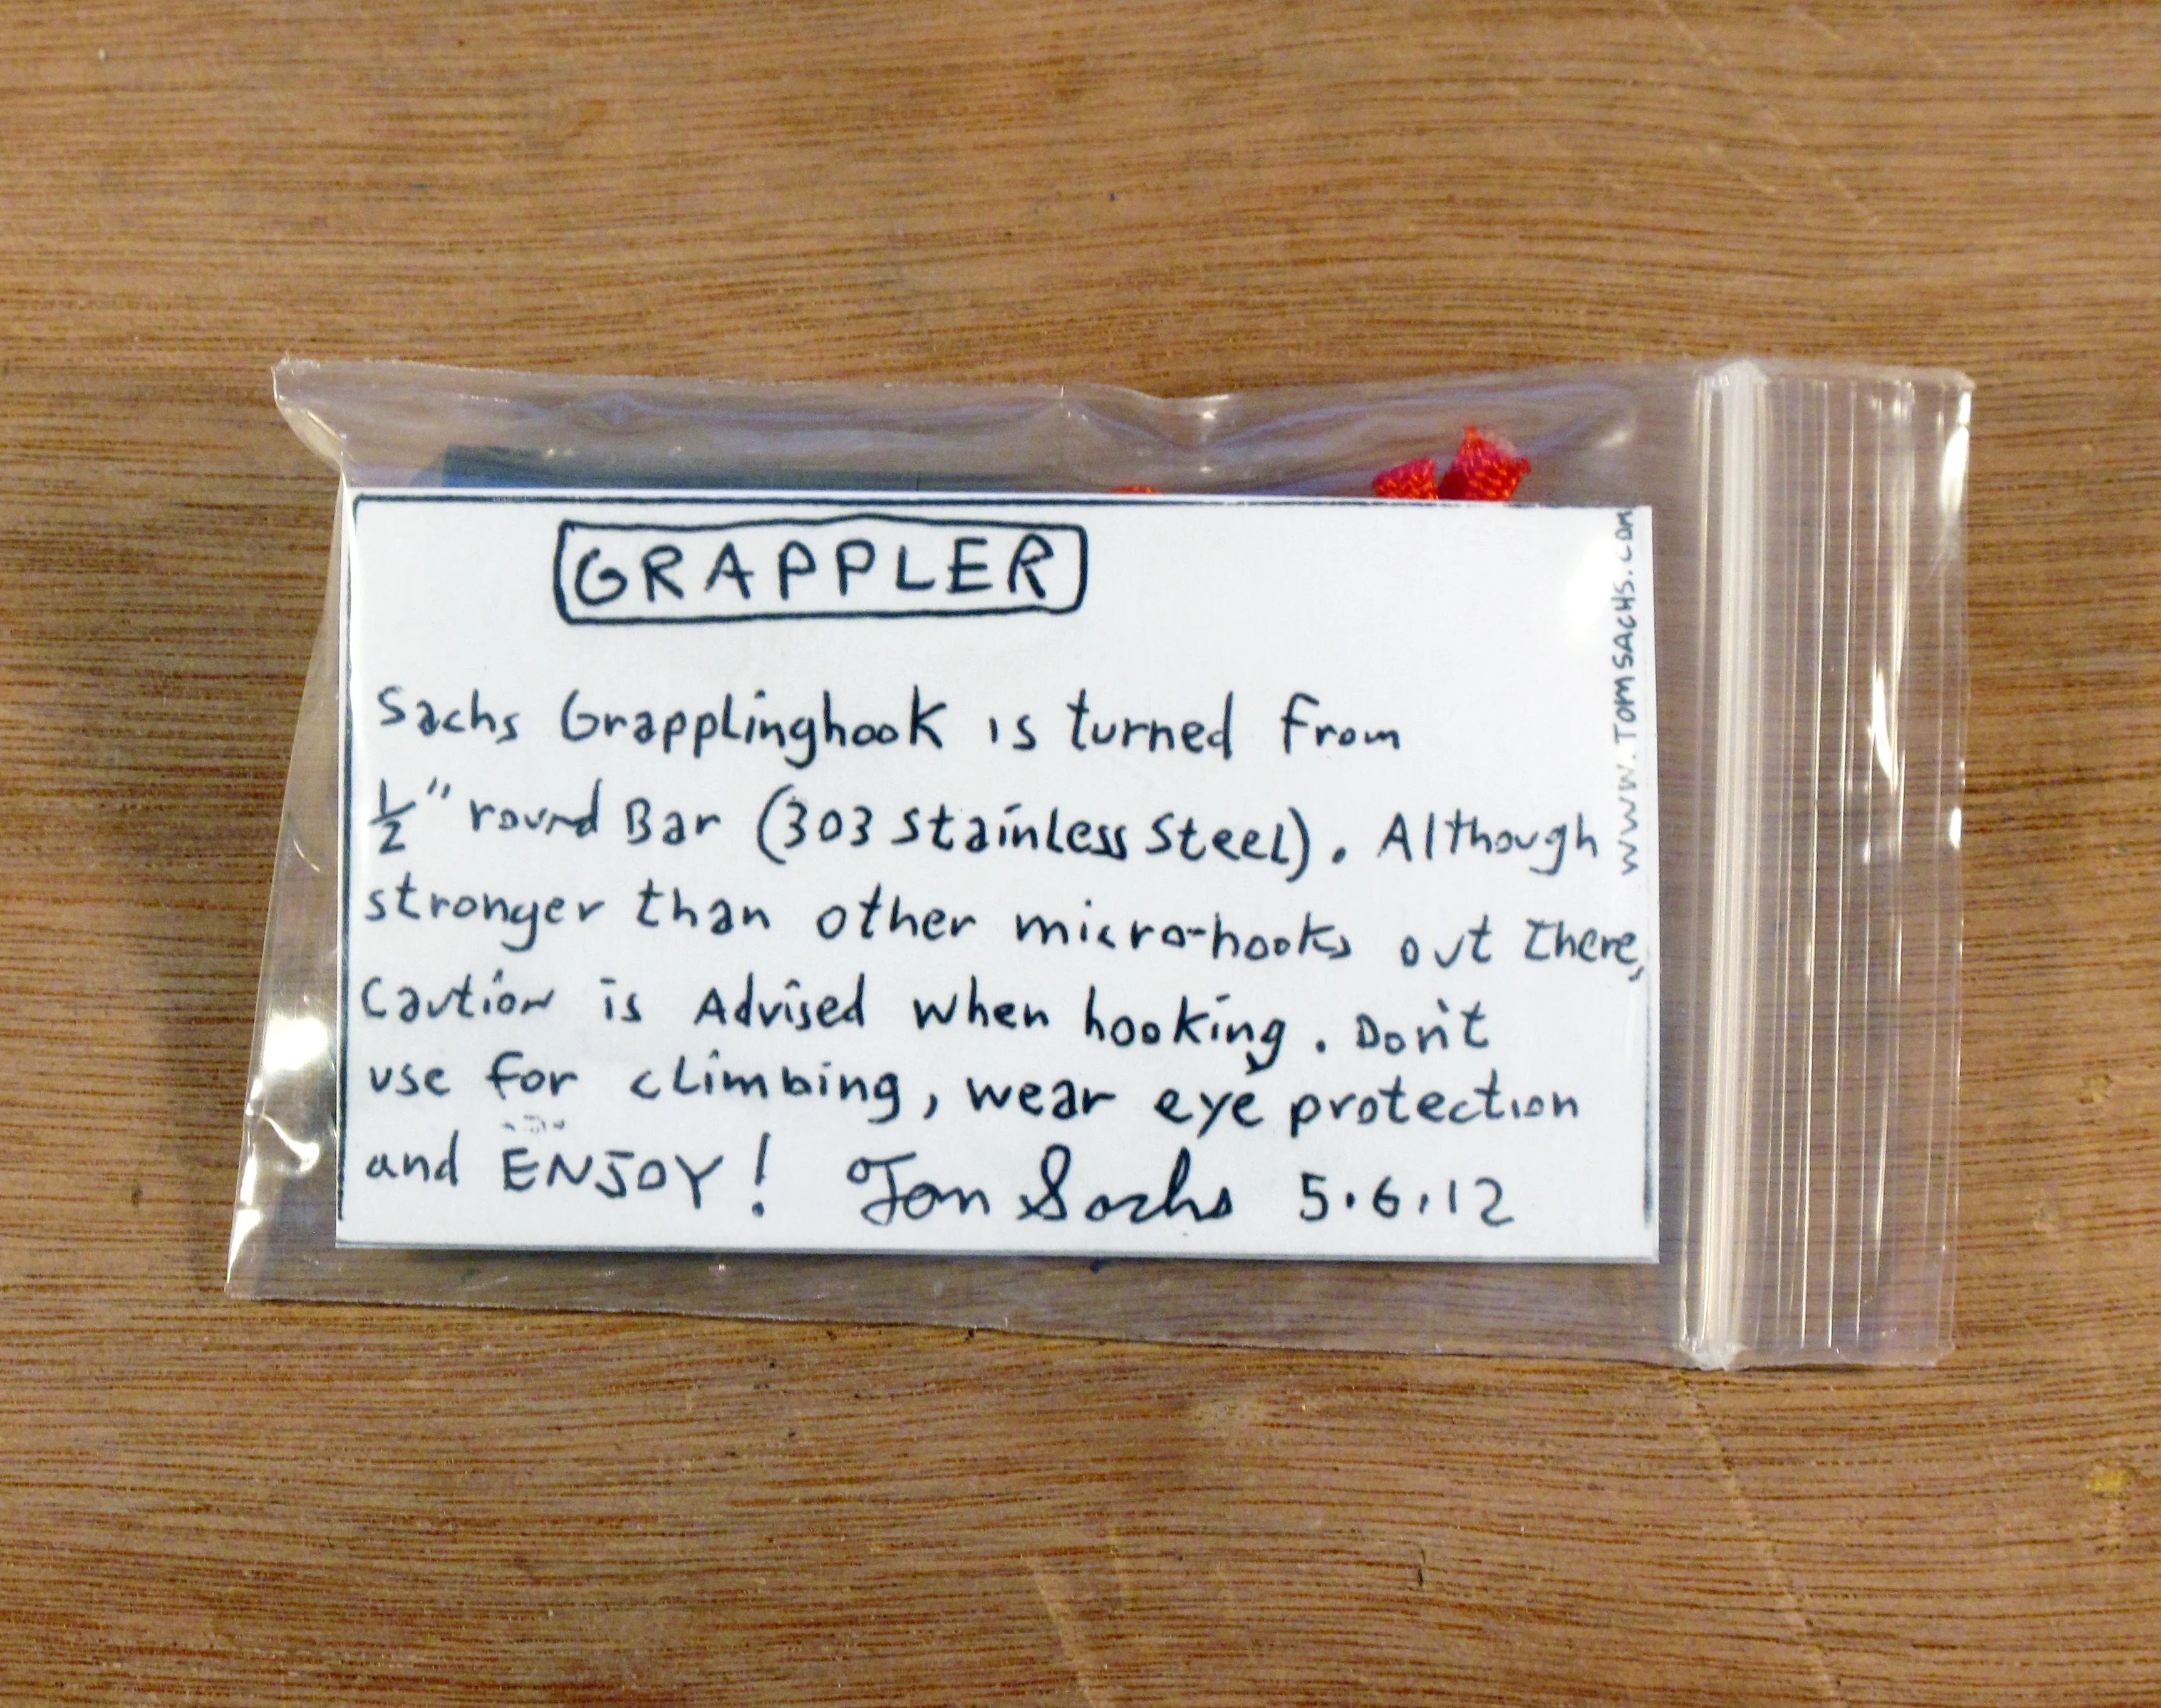 GRAPPLER
Sachs Grapplinghook is turned from
½" round Bar (303 Stainless Steel). Although
stronger than other micro-hooks out there,
Caution is Advised when hooking. Don't
use for climbing, wear eye protection
and ENJOY! Tom Sachs 5.6.12
WWW.TOMSACHS.COM